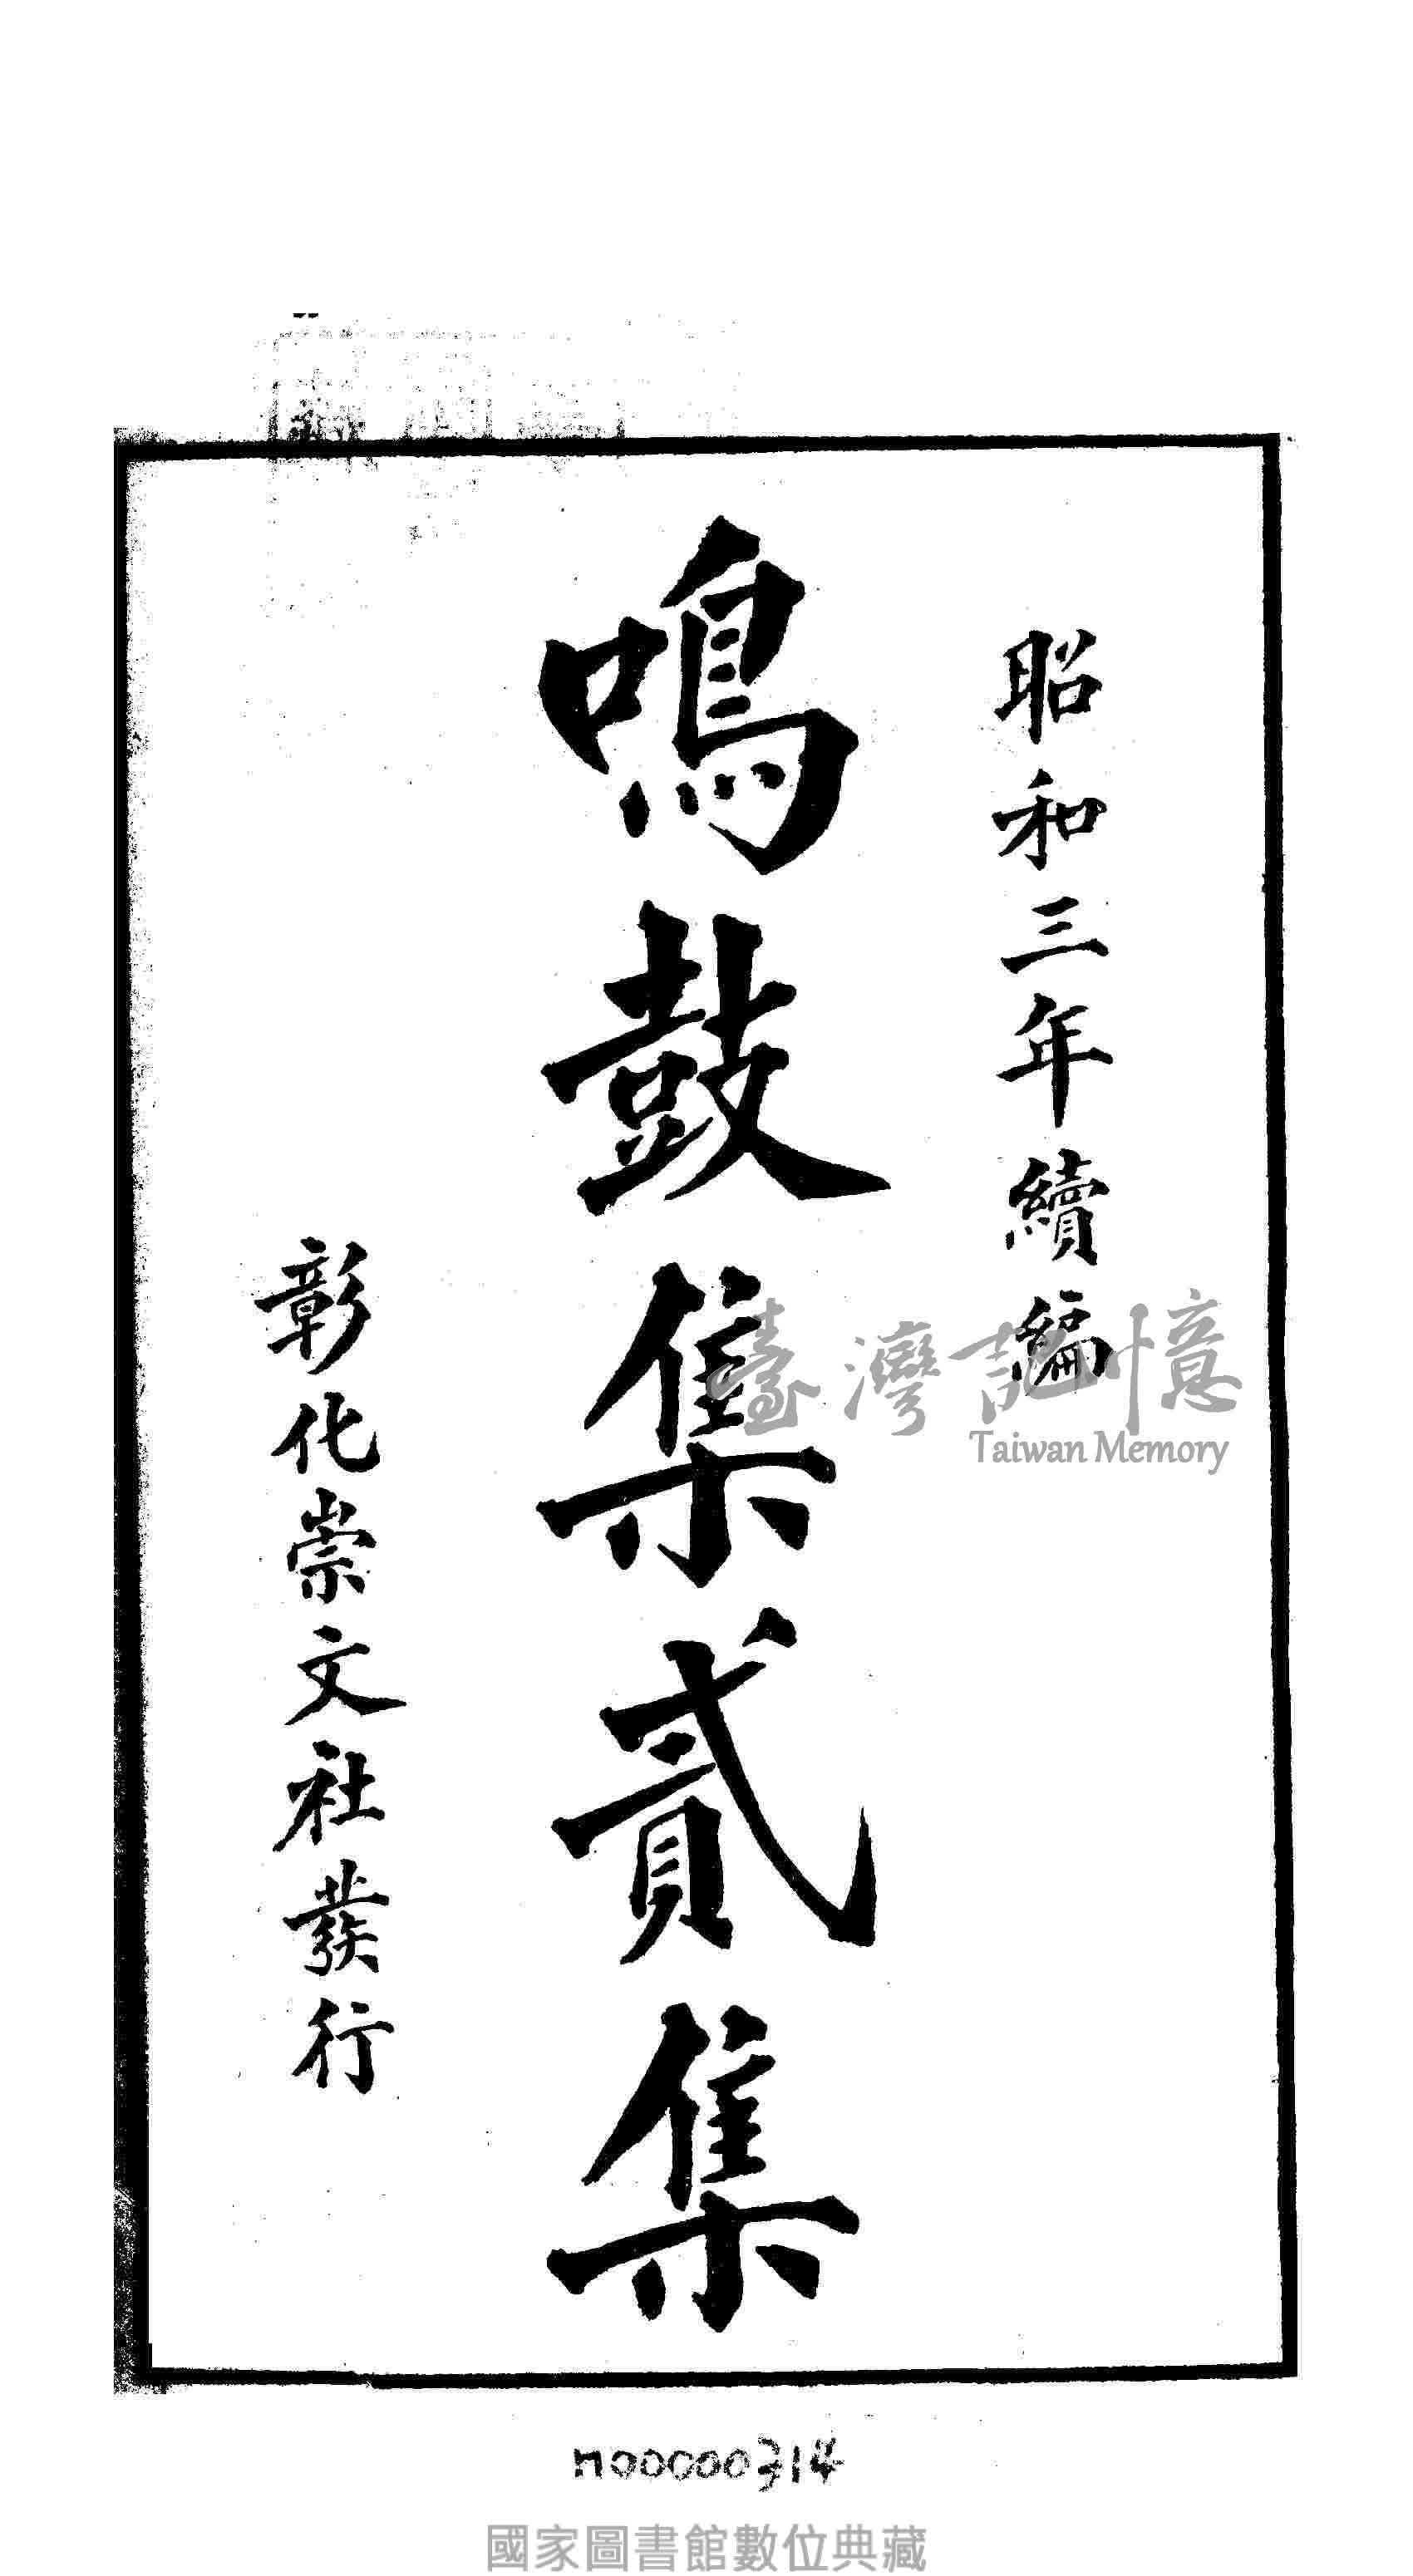 昭和三年續編
鳴鼓集貳集
彰化崇文社發行
臺灣記憶
Taiwan Memory
n00000314
國家圖書館數位典藏